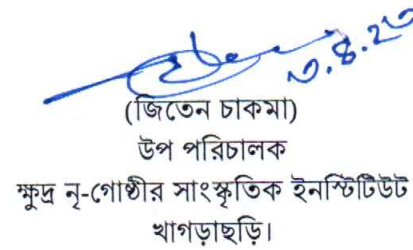 ৩.৪.২৩
(জিতেন চাকমা)
উপ পরিচালক
ক্ষুদ্র নৃ-গোষ্ঠীর সাংস্কৃতিক ইনস্টিটিউট
খাগড়াছড়ি।